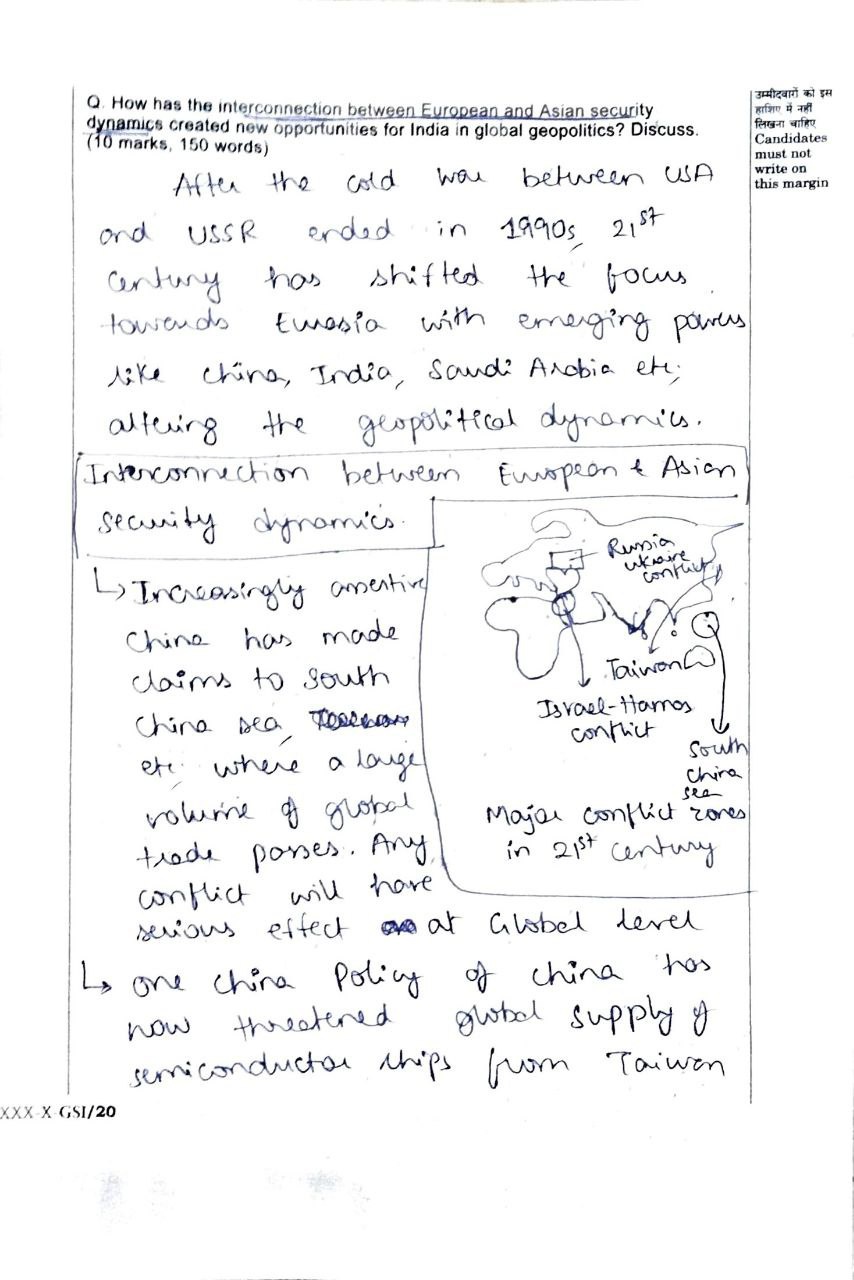 Q. How has the interconnection between European and Asian security
dynamics created new opportunities for India in global geopolitics? Discuss.
(10 marks, 150 words)
उम्मीदवारों को इस
हाशिए में नहीं
लिखना चाहिए
Candidates
must not
write on
this margin
After the cold war between USA
and USSR ended in 1990s, 21st
century has shifted the focus
towards Eurasia with emerging powers
like China, India, Saudi Arabia etc;
altering the geopolitical dynamics.
Interconnection between European & Asian
security dynamics.
↳ Increasingly assertive
China has made
claims to South
China sea,
etc, where a large
volume of global
trade passes. Any
conflict will have
serious effect at Global level
Russia
Ukraine
conflict
Taiwan
Israel-Hamas
conflict
South
China
sea
Major conflict zones
in 21st century
↳ one China Policy of China has
now threatened global supply of
semiconductor chips from Taiwan
XXX-X-GSI/20